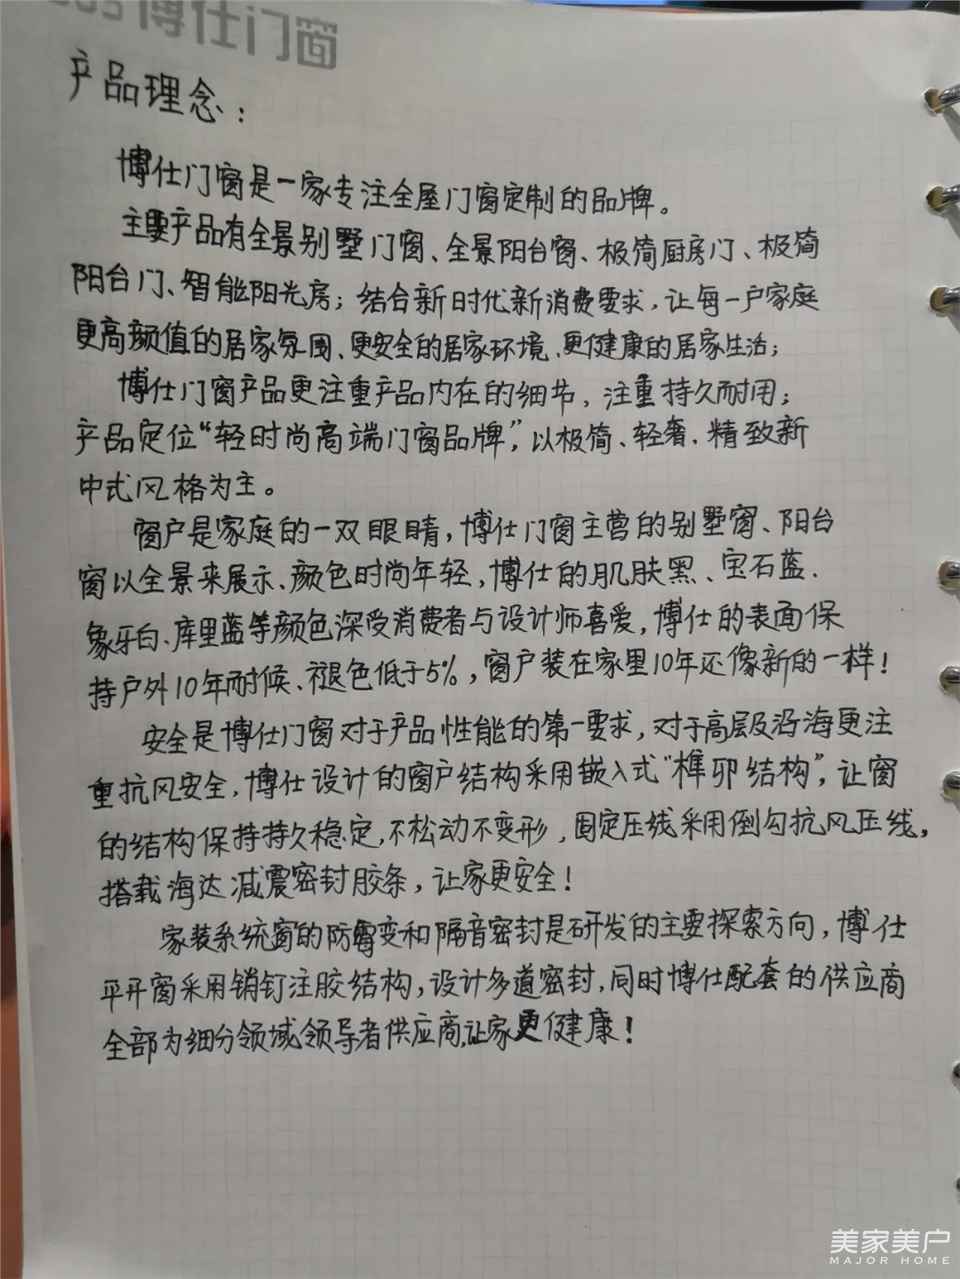 博仕门窗
产品理念：
博仕门窗是一家专注全屋门窗定制的品牌。
主要产品有全景别墅门窗、全景阳台窗、极简厨房门、极简
阳台门、智能阳光房；结合新时代新消费要求，让每一户家庭
更高颜值的居家氛围、更安全的居家环境、更健康的居家生活；
博仕门窗产品更注重产品内在的细节，注重持久耐用；
产品定位“轻时尚高端门窗品牌”，以极简、轻奢、精致新
中式风格为主。
窗户是家庭的一双眼睛，博仕门窗主营的别墅窗、阳台
窗以全景来展示、颜色时尚年轻，博仕的肌肤黑、宝石蓝、
象牙白、库里蓝等颜色深受消费者与设计师喜爱，博仕的表面保
持户外10年耐候、褪色低于5%，窗户装在家里10年还像新的一样！
安全是博仕门窗对于产品性能的第一要求，对于高层及沿海更注
重抗风安全，博仕设计的窗户结构采用嵌入式“榫卯结构”，让窗
的结构保持持久稳定，不松动不变形，固定压线采用倒勾抗风压线，
搭载海达减震密封胶条，让家更安全！
家装系统窗的防霉变和隔音密封是研发的主要探索方向，博仕
平开窗采用销钉注胶结构，设计多道密封，同时博仕配套的供应商
全部为细分领域领导者供应商，让家更健康！
美家美户
MAJOR HOME